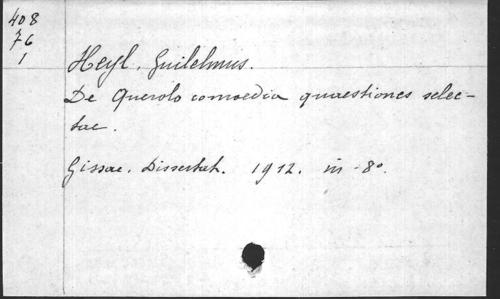 408
76
1
Heyl, Guilelmus.
De Querolo comoedia quaestiones selec-
tae.
Gissae. Dissertat. 1912. in -8°.